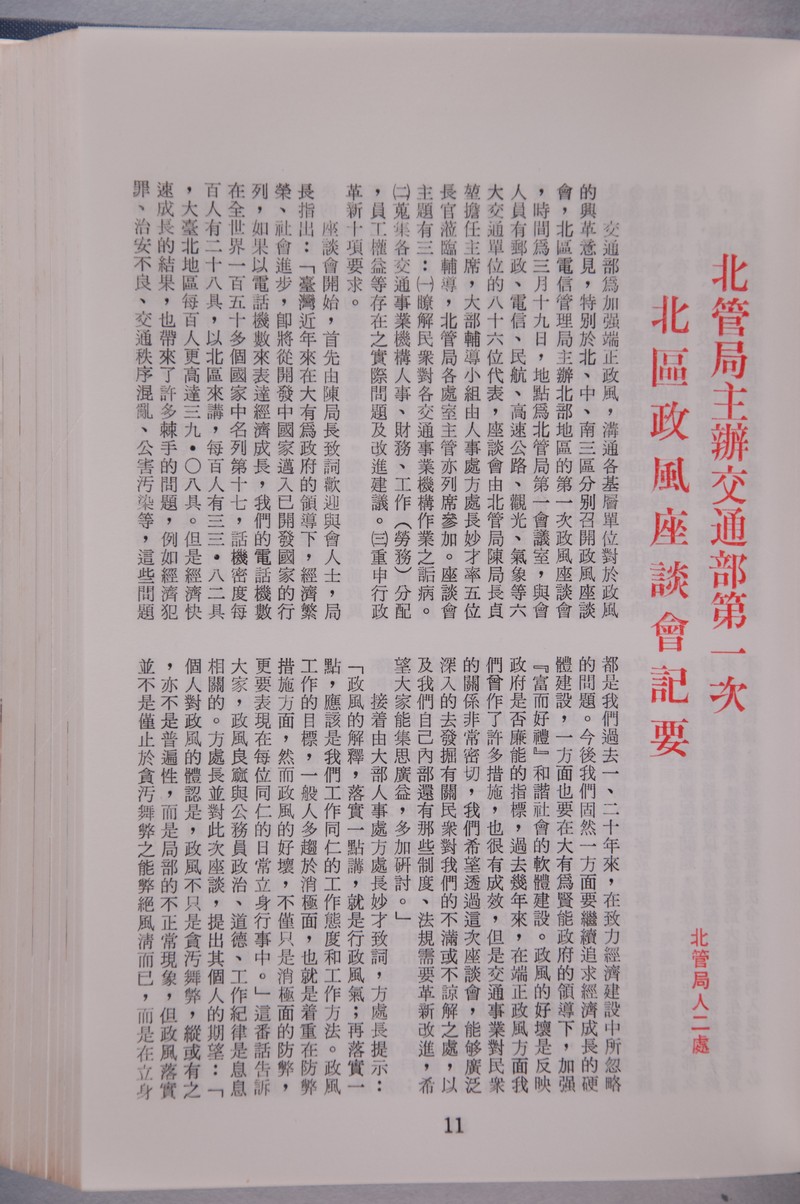 北管局主辦交通部第一次
北區政風座談會記要
北管局人二處
交通部爲加强端正政風，溝通各基層單位對於政風
的興革意見，特別於北、中、南三區分别召開政風座談
會，北區電信管理局主辦北部地區的第一次政風座談會
，時間爲三月十九日，地點爲北管局第一會議室，與會
人員有郵政、電信、民航、高速公路、觀光、氣象等六
大交通單位的八十六位代表，座談會由北管局陳局長貞
堃擔任主席，大部輔導小組由人事處方處長妙才率五位
長官蒞臨輔導，北管局各處室主管亦列席參加。座談會
主題有三：㈠瞭解民衆對各交通事業機構作業之詬病。
㈡蒐集各交通事業機構人事、財務、工作（勞務）分配
，員工權益等存在之實際問題及改進建議。㈢重申行政
革新十項要求。
座談會開始，首先由陳局長致詞歡迎與會人士，局
長指出：「臺灣近年來在大有爲政府的領導下，經濟繁
榮、社會進步，卽將從開發中國家邁入已開發國家的行
列，如果以電話機數來表達經濟成長，我們的電話機數
在全世界一百五十多個國家中名列第十七，話機密度每
百人有二十八具，以北區來講，每百人有三三・八二具
，大臺北地區每百人更高達三九・〇八具。但是經濟快
速成長的結果，也帶來了許多棘手的問題，例如經濟犯
罪、治安不良、交通秩序混亂、公害汚染等，這些問題
都是我們過去一、二十年來，在致力經濟建設中所忽略
的問題。今後我們固然一方面要繼續追求經濟成長的硬
體建設，一方面也要在大有爲賢能政府的領導下，加强
『富而好禮』和諧社會的軟體建設。政風的好壞是反映
政府是否廉能的指標，過去幾年來，在端正政風方面我
們曾作了許多措施，也很有成效，但是交通事業對民衆
的關係非常密切，我們希望透過這次座談會，能够廣泛
深入的去發掘有關民衆對我們的不滿或不諒解之處，以
及我們自己內部還有那些制度、法規需要革新改進，希
望大家能集思廣益，多加研討。」
接着由大部人事處方處長妙才致詞，方處長提示：
「政風的解釋，落實一點講，就是行政風氣；再落實一
點，應該是我們工作同仁的工作態度和工作方法。政風
工作的目標，一般人多趨於消極面，也就是着重在防弊
措施方面，然而政風的好壞，不僅只是消極面的防弊，
更要表現在每位同仁的日常立身行事中。」這番話告訴
大家，政風良窳與公務員政治、道德、工作紀律是息息
相關的。方處長並對此次座談，提出其個人的期望：「
個人對政風的體認是，政風不只是貪汚舞弊，縱或有之
，亦不是普遍性，而是局部的不正常現象，但政風落實
並不是僅止於貪汚舞弊之能弊絕風清而已，而是在立身
11